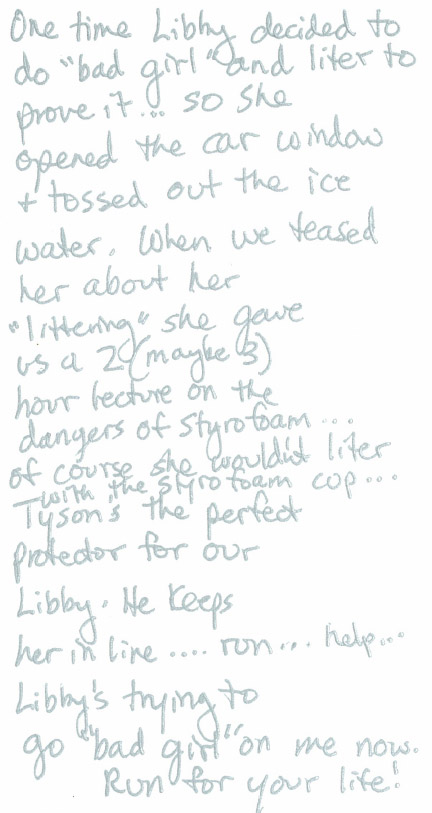 One time Libby decided to
do "bad girl" and liter to
prove it... so she
opened the car window
+ tossed out the ice
water. When we teased
her about her
"littering" she gave
us a 2 (maybe 3)
hour lecture on the
dangers of styrofoam ...
of course she wouldn't liter
with the styrofoam cop...
Tyson's the perfect
protector for our
Libby. He keeps
her in line .... run... help...
Libby's trying to
go "bad girl" on me now.
Run for your life!